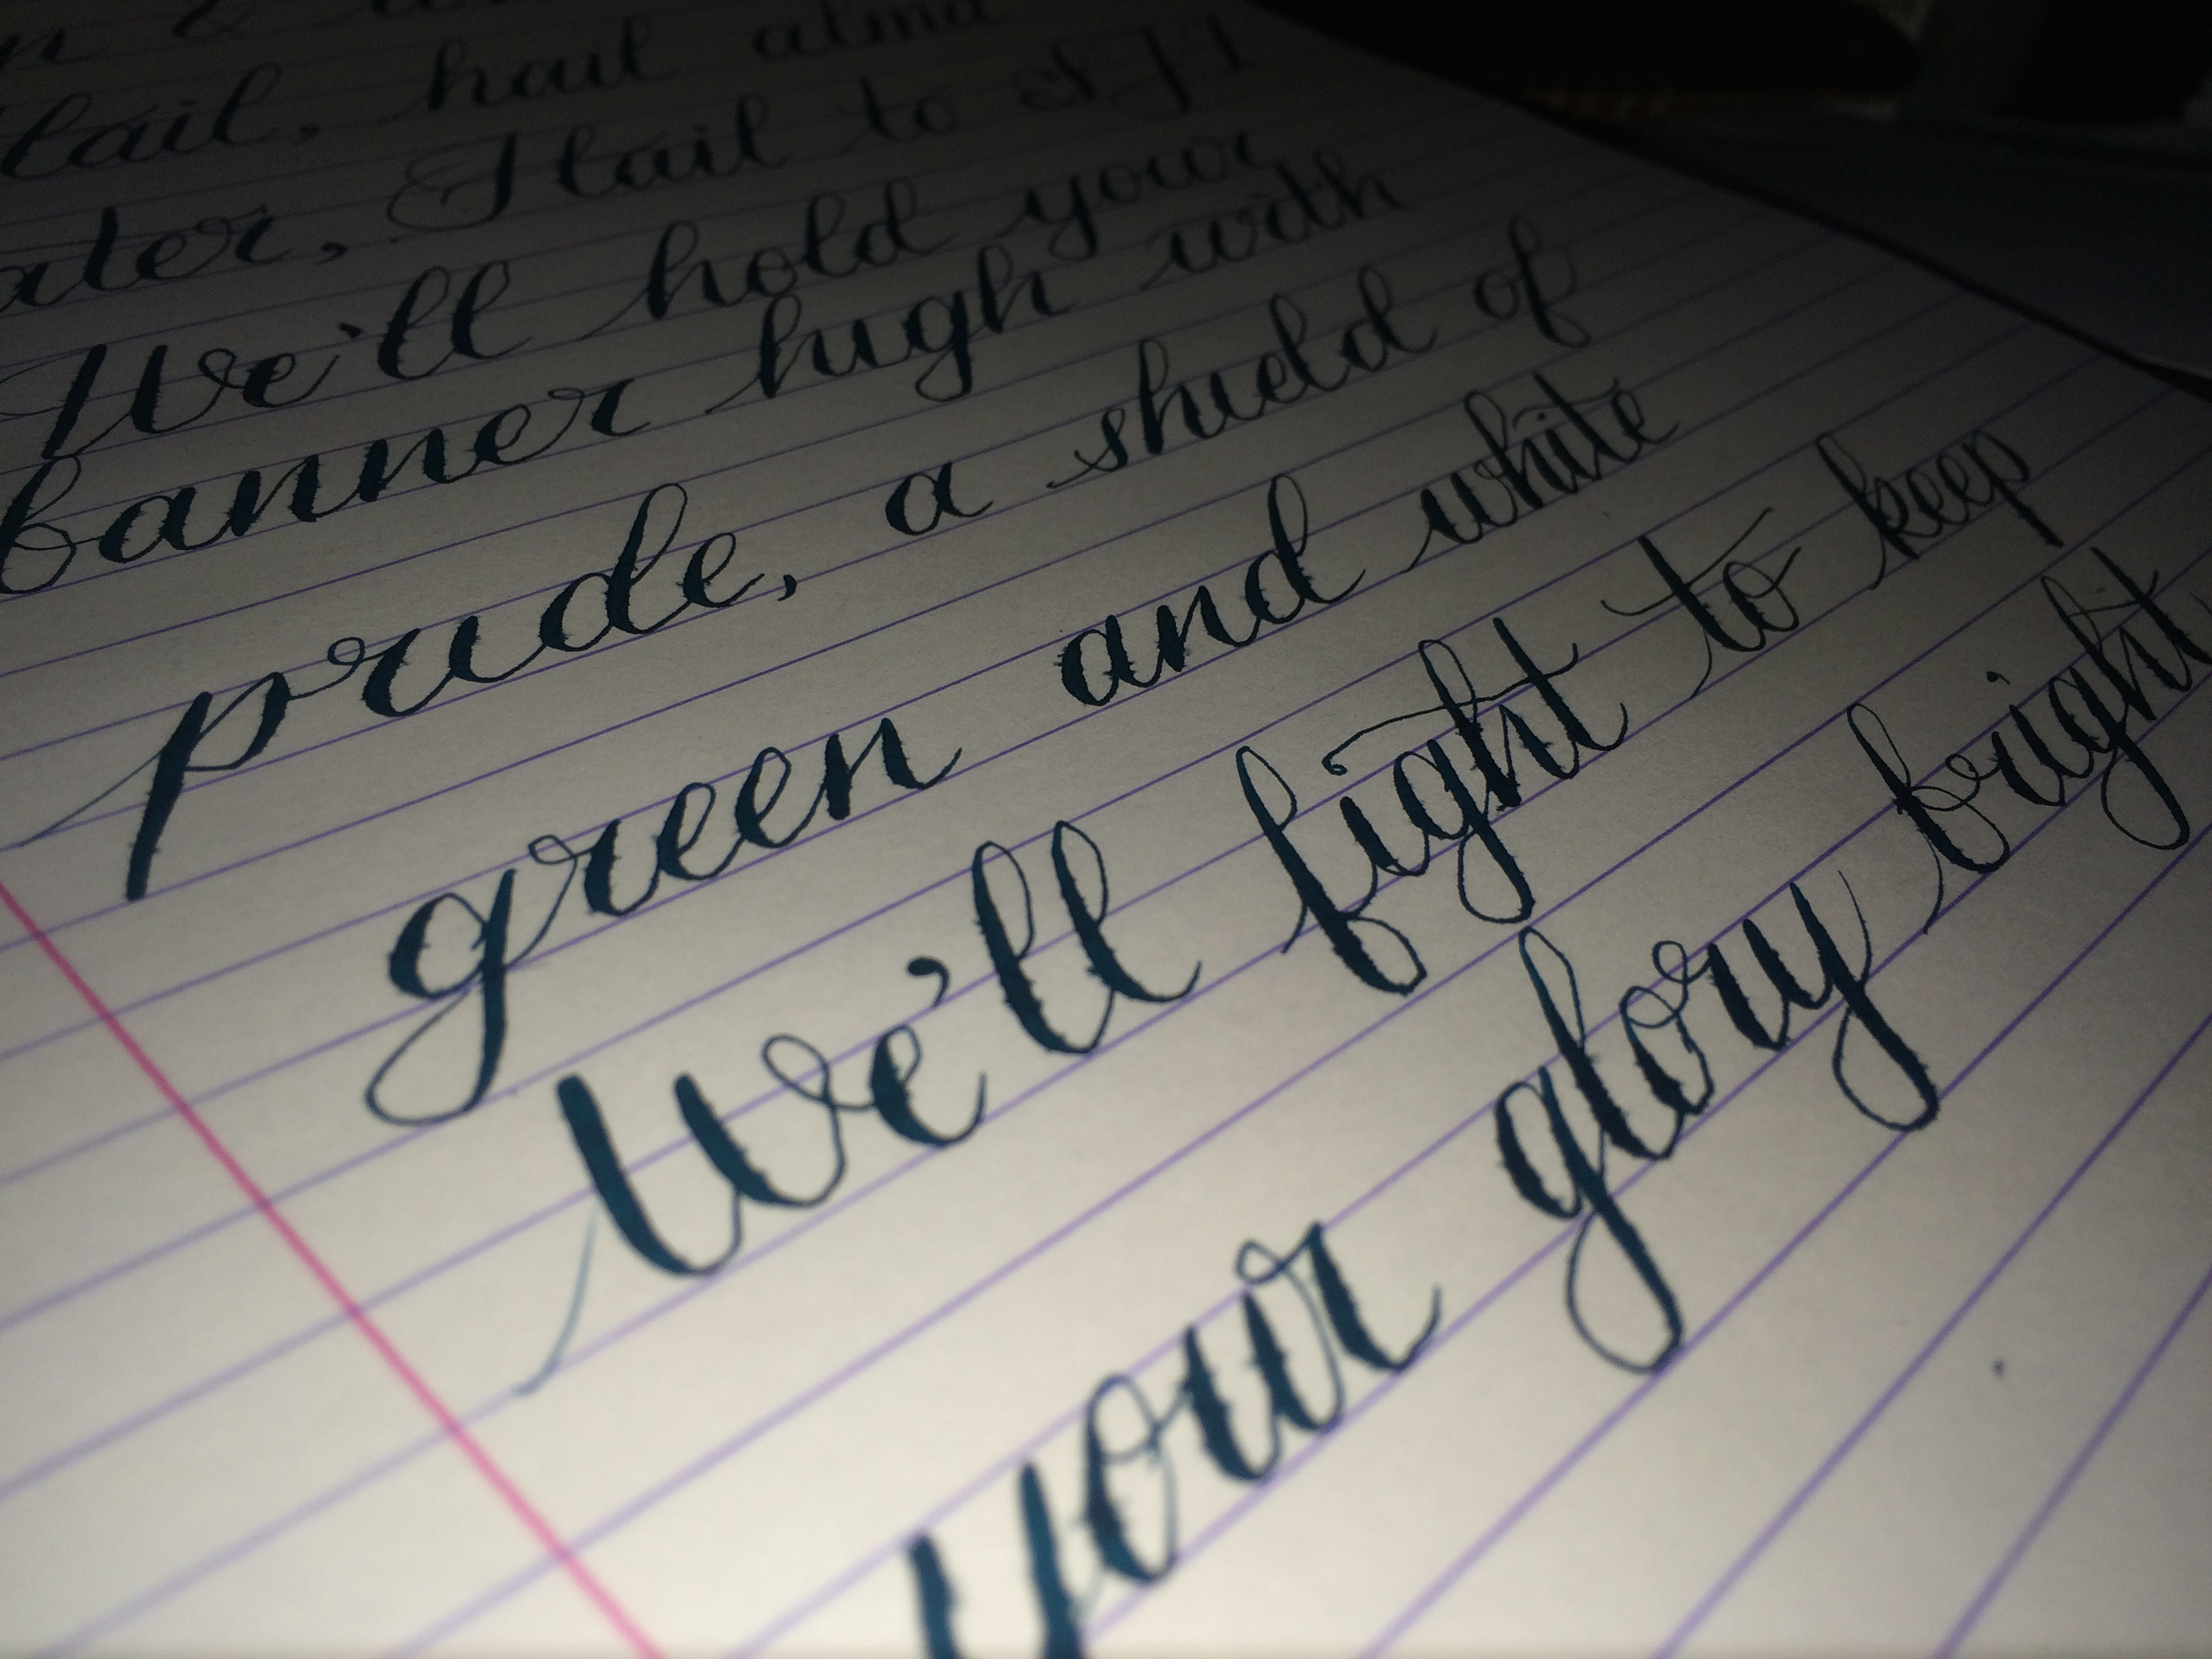 &
Hail, hail alma
ater, Hail to
We'll hold your
banner high with
pride, a shield of
green and white
We'll fight to keep
your glory bright